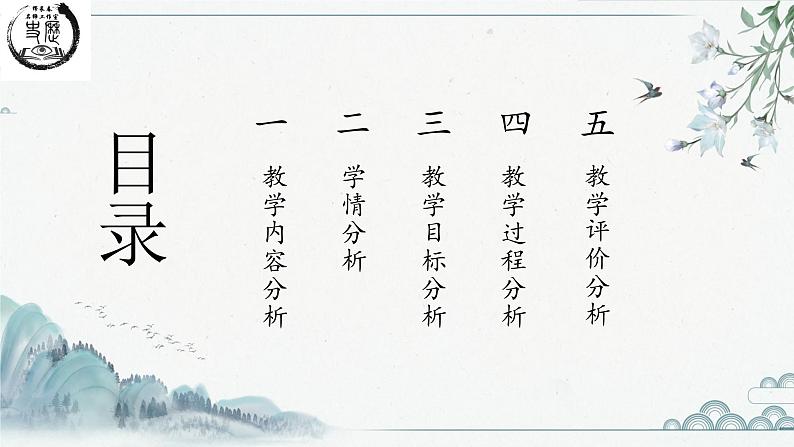 名师工作室
目录
一
教学内容分析
二
学情分析
三
教学目标分析
四
教学过程分析
五
教学评价分析